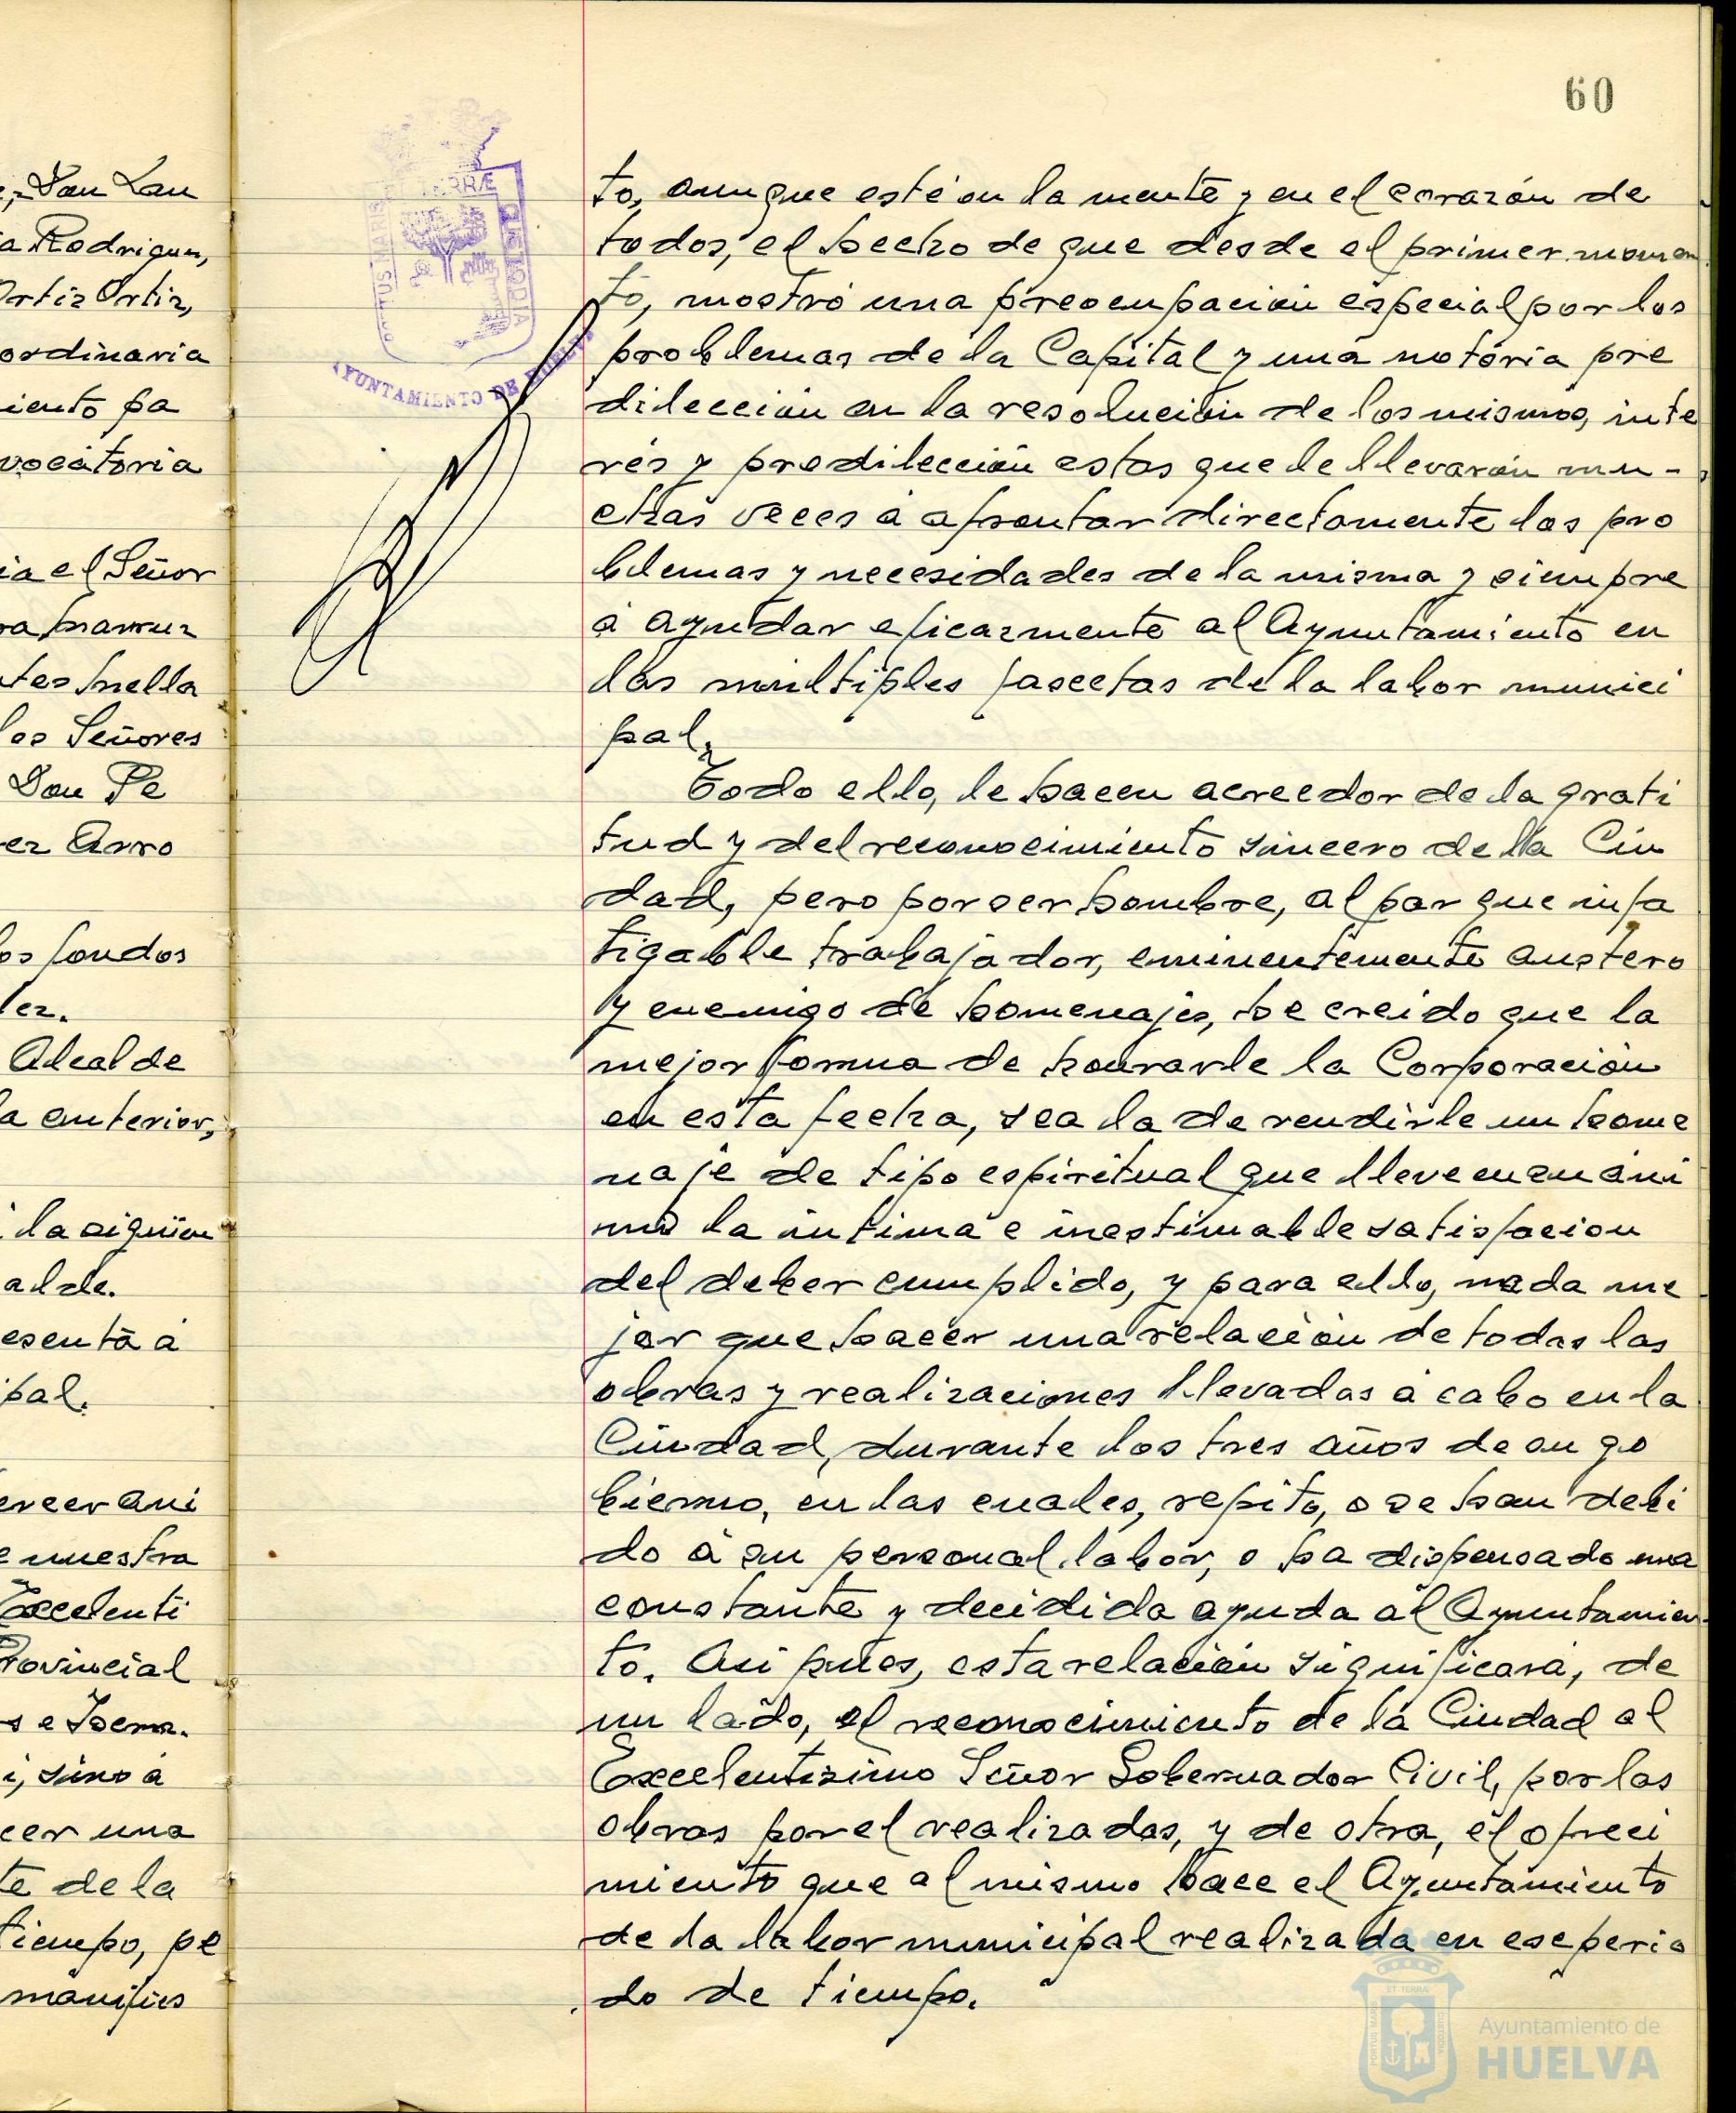 60
to, aunque esté en la mente y en el corazón de
todos, el hecho de que desde el primer momen
to, mostró una preocupación especial por los
problemas de la Capital y una notoria pre
dilección en la resolución de los mismos, inte
rés y predilección estos que le llevarón mu-
chas veces a afrontar directamente los pro
blemas y necesidades de la misma y siempre
a ayudar eficazmente al Ayuntamiento en
las múltiples fascetas de la labor munici
pal.
Todo ello, le hacen acreedor de la grati
tud y del reconocimiento sincero de la Ciu
dad, pero por ser hombre, al par que infa
tigable trabajador, eminentemente austero
y enemigo de homenajes, he creido que la
mejor forma de honrarle la Corporación
en esta fecha, sea la de rendirle un home
naje de tipo espiritual que lleve en su áni
mo la intima e inestimable satisfacion
del deber cumplido, y para ello, nada me
jor que hacer una relación de todas las
obras y realizaciones llevadas a cabo en la
Ciudad, durante los tres años de su go
bierno, en las cuales, repito, o se han debi
do a su personal labor, o ha dispensado una
constante y decidida ayuda al Ayuntamien
to. Asi pues, esta relación significará, de
un lado, el reconocimiento de la Ciudad al
Excelentisimo Señor Gobernador Civil, por las
obras por el realizadas, y de otra, el ofreci
miento que al mismo hace el Ayuntamiento
de la labor municipal realizada en ese perio
do de tiempo.
AYUNTAMIENTO DE HUELVA
Don Lau
a Rodriguez,
Ortiz Ortiz,
ordinaria
iento pa
vocatoria
ia el Señor
los Señores
Don Pe
ez Arro
os fondos
lez.
Alcalde
la anterior,
la siguien
alde.
esenta a
ipal.
ercer ani
e nuestra
Excelenti
Provincial
i, sino a
cer una
te de la
tiempo, pe
manifies
Ayuntamiento de
HUELVA